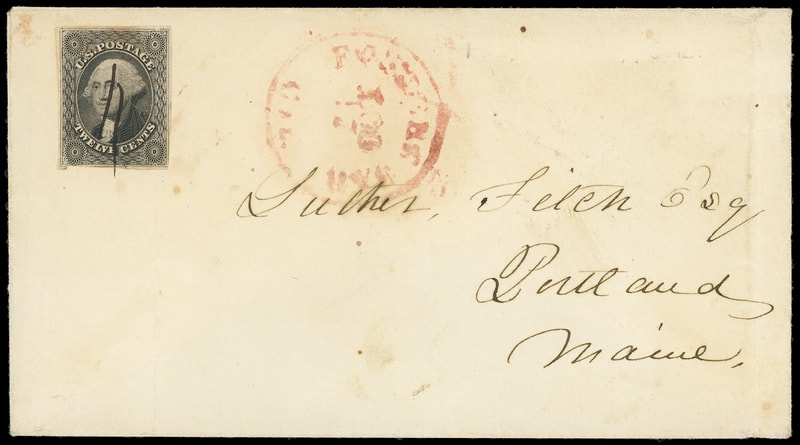 U.S. POSTAGE
TWELVE CENTS
Luther, Fitch Esq
Portland
Maine.